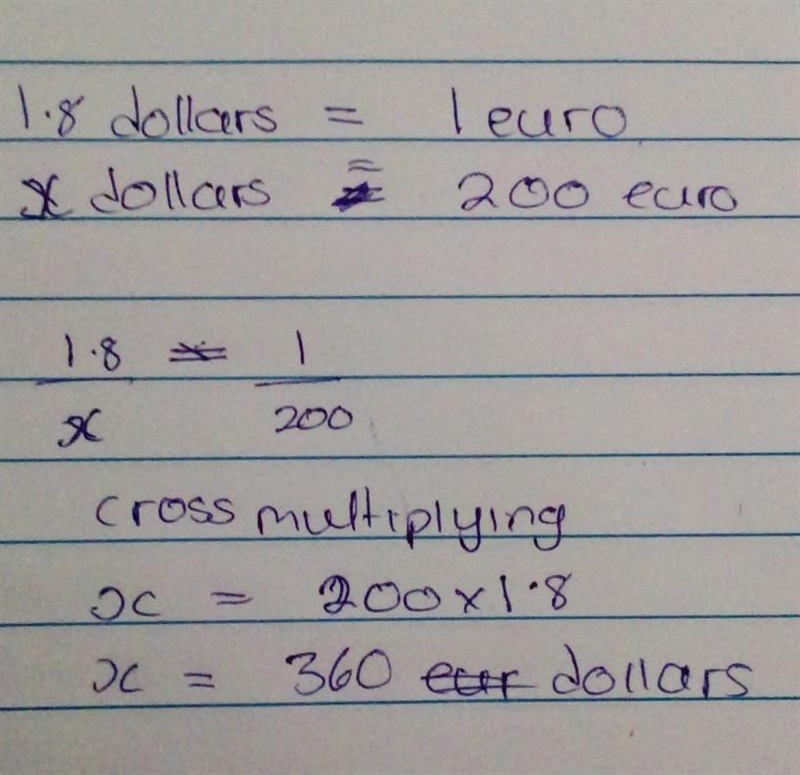 1.8 dollars = 1 euro
x dollars = 200 euro
1.8 = 1
x 200
cross multiplying
x = 200 x 1.8
x = 360 eur dollars